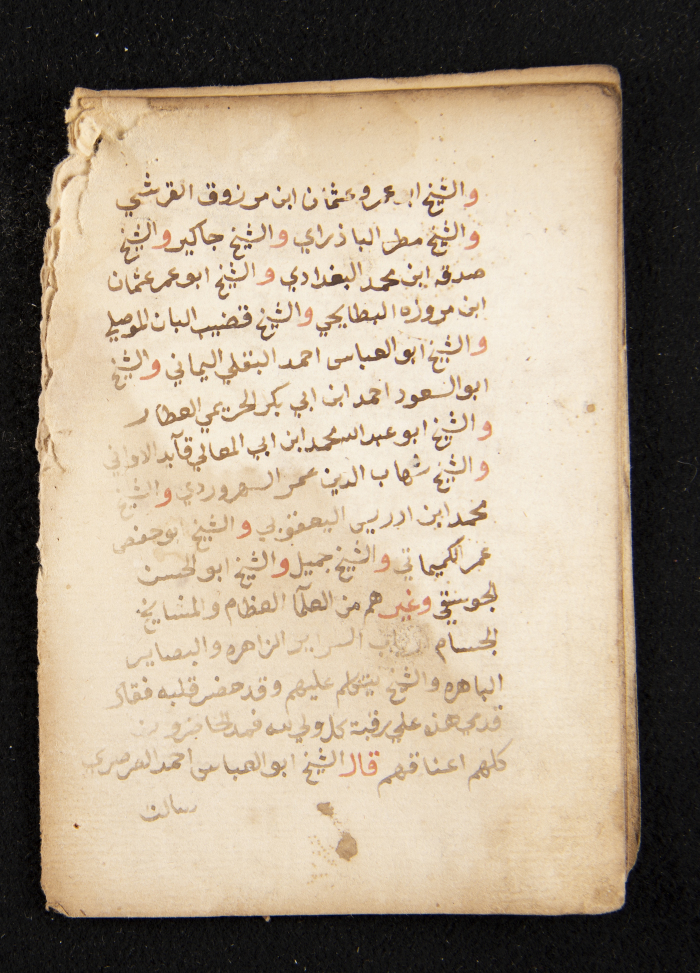 والشيخ ابو عمرو عثمان ابن مرزوق القرشي
والشيخ مطر الباذراي والشيخ جاكير والشيخ
صدقه ابن محمد البغدادي والشيخ ابو عمر عثمان
ابن مروزه البطايحي والشيخ قضيب البان الموصلي
والشيخ ابو العباس احمد البقلي اليماني والشيخ
ابو السعود احمد ابن ابي بكر الحريمي العطار
والشيخ ابو عبد الله محمد ابن ابي المعالي قآيد الاواني
والشيخ شهاب الدين عمر السهروردي والشيخ
محمد ابن ادريس اليعقوبي والشيخ ابو حفص
عمر الكميماتي والشيخ جميل والشيخ ابو الحسن
الجوسيقي وغيرهم من العلمآ العظام والمشايخ
الجسام ارباب السراير الزاهره والبصاير
الباهره والشيخ يتكلم عليهم وقد حضر قلبه فقال
قدمي هذه علي رقبة كل ولي لله فمد الحاضرون
كلهم اعناقهم قال الشيخ ابو العباس احمد الصرصري
سالت